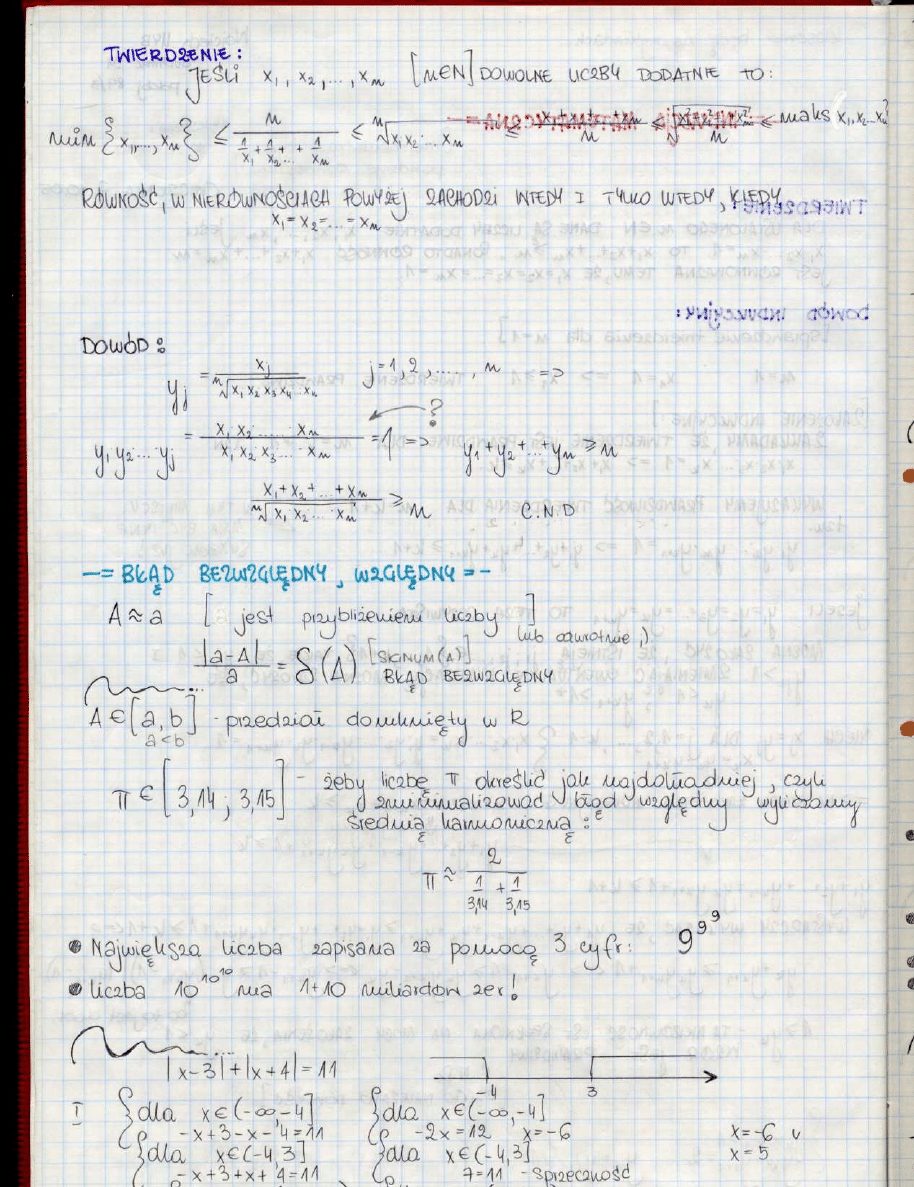 TWIERDZENIE:
JEŚLI x₁, x₂, ..., xₙ [n∈N] DOWOLNE LICZBY DODATNIE TO:
min {x₁,...,xₙ} ≤ n / (1/x₁ + 1/x₂ ... + 1/xₙ) ≤ ⁿ√(x₁x₂ · ... xₙ) ≤ maks x₁, x₂...xₙ
RÓWNOŚĆ, W NIERÓWNOŚCIACH POWYŻEJ ZACHODZI WTEDY I TYLKO WTEDY, KIEDY
x₁ = x₂ = ... = xₙ
DOWÓD:
yⱼ = xⱼ / ⁿ√(x₁ x₂ x₃ x₄ ... xₙ) j=1, 2, ...., n =>
?
y₁ y₂ ... yⱼ = x₁ x₂ ... xₙ / x₁ x₂ x₃ ... xₙ = 1 => y₁+y₂+...+yₙ ≥ n
x₁+x₂+...+xₙ / ⁿ√(x₁ · x₂ · ... · xₙ) ≥ n C.N.D
-= BŁĄD BEZWZGLĘDNY, WZGLĘDNY =-
A ≈ a [jest przybliżeniem liczby]
lub odwrotnie ;)
|a-A| / a = δ(A) [SIGNUM(A)]
BŁĄD BEZWZGLĘDNY
A ∈ [a, b] - przedział domknięty w R
a<b
π ∈ [3,14 ; 3,15] - żeby liczbę π określić jak najdokładniej, czyli
zminimalizować błąd względny wyliczamy
średnią harmoniczną:
π ≈ 2 / (1/3,14 + 1/3,15)
• Największa liczba zapisana za pomocą 3 cyfr: 9^9^9
• liczba 10^10^10 ma 1+10 miliardów zer!
|x-3|+|x+4|=11
-4 3
I { dla x∈(-∞,-4] { dla x∈(-∞,-4]
-x+3-x-4=11 -2x=12 x=-6 x=-6 v
{ dla x∈(-4,3] { dla x∈(-4,3] x=5
-x+3+x+4=11 7=11 - sprzeczność